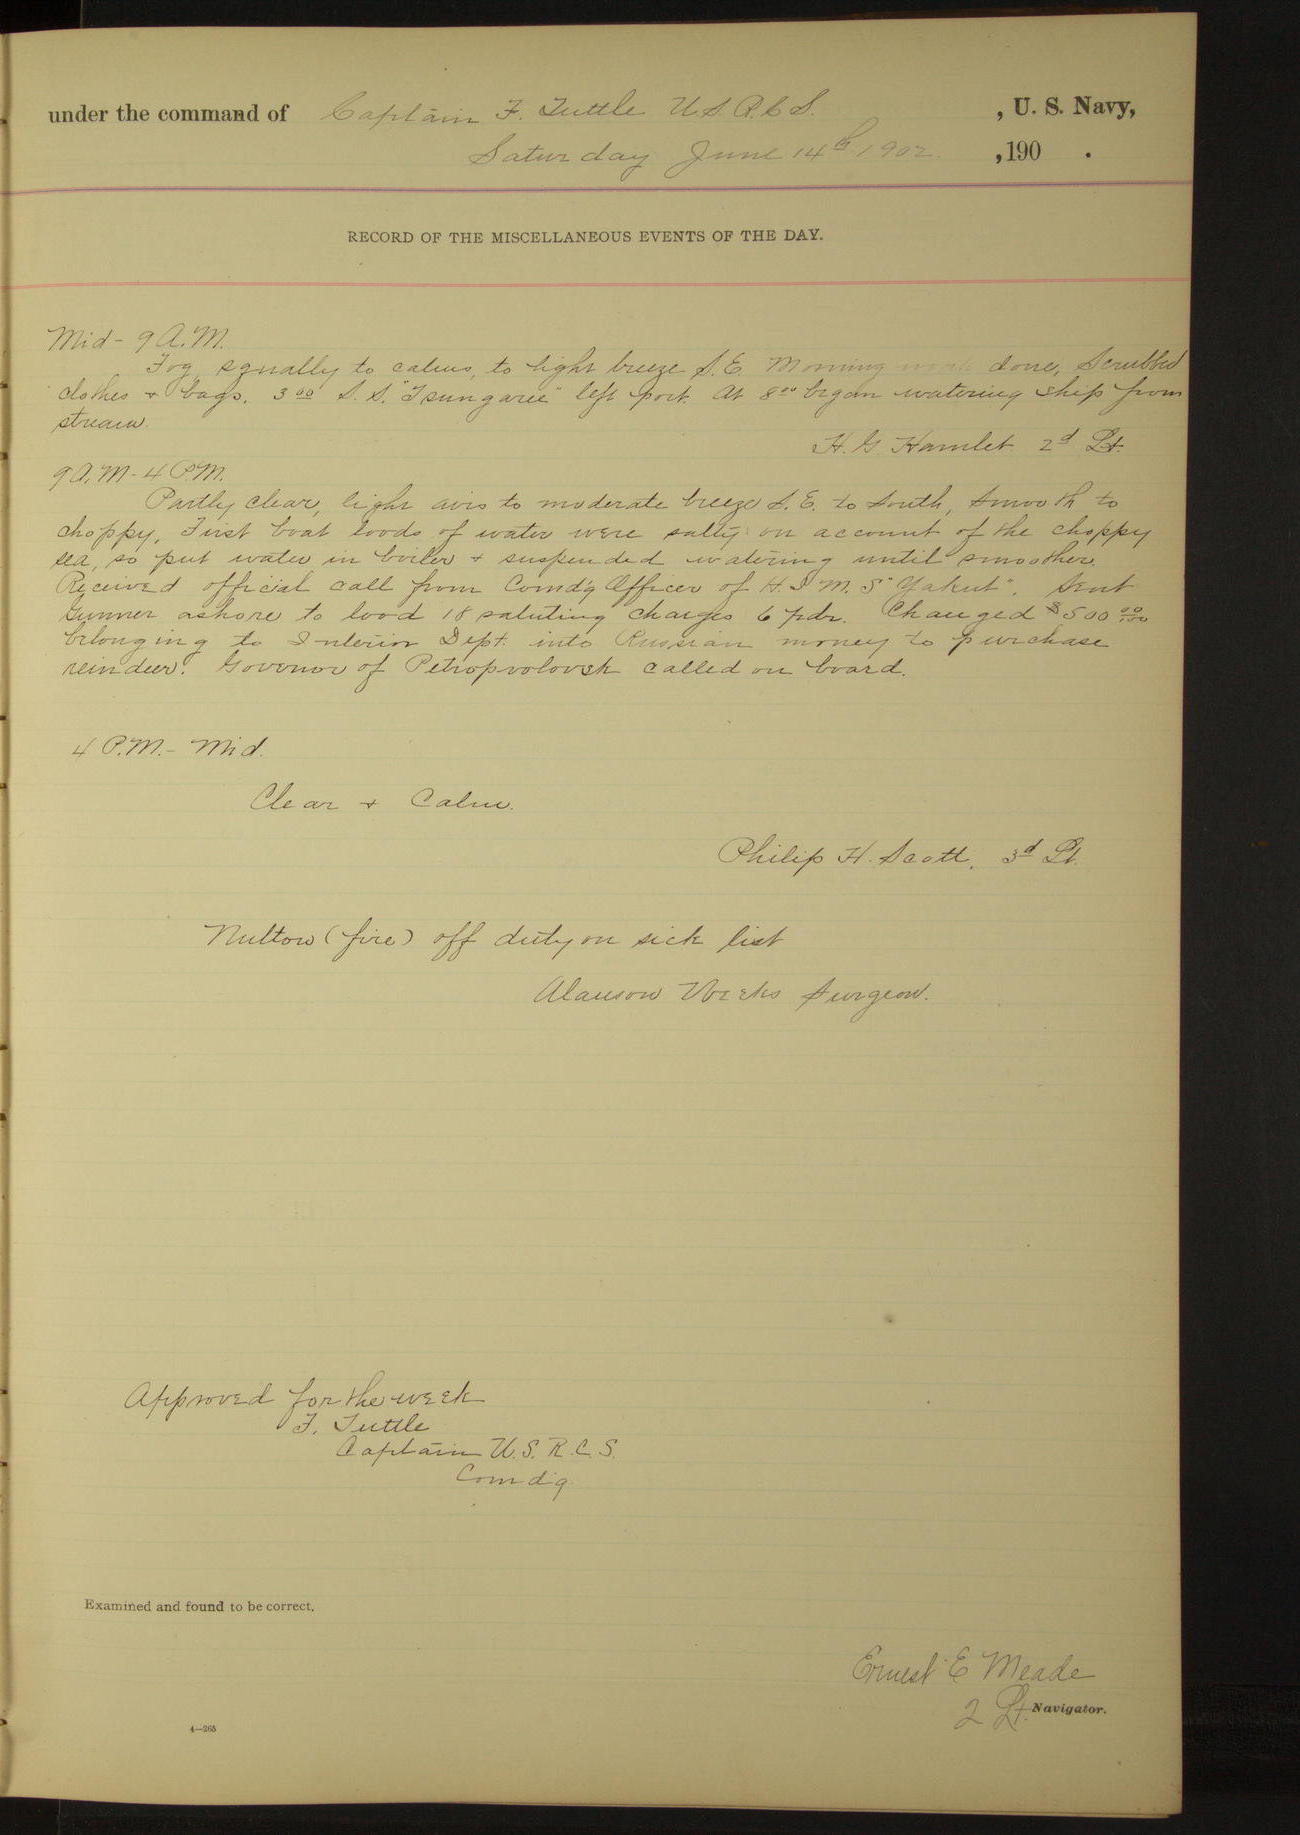 under the command of Captain F. Tuttle U.S.R.C.S. , U. S. Navy,
Saturday June 14th 1902. , 190 .
RECORD OF THE MISCELLANEOUS EVENTS OF THE DAY.
Mid - 9 A.M.
Fog, squally to calms, to light breeze S.E. Morning work done, Scrubbed
clothes & bags. 3 00 S.S. "Tsungarie" left port. At 8 00 began watering ship from
stream.
H. G. Hamlet 2d Lt.
9 A.M - 4 P.M.
Partly clear, light airs to moderate breeze S.E. to South, Smooth to
choppy, First boat loads of water were salty on account of the choppy
sea, so put water in boiler & suspended watering until smoother.
Received official call from Comd'g Officer of H.I.M.S "Yakut". Sent
Gunner ashore to load 18 saluting charges 6 pdr. Changed $500 00/100
belonging to Interior Dept. into Russian money to purchase
reindeer. Govonor of Petropvolovsk called on board.
4 P.M. - Mid.
Clear & Calm.
Philip H. Scott, 3d Lt.
Nulton (fire) off duty on sick list
Alanson Weeks Surgeon.
Approved for the week
F. Tuttle
Captain U.S.R.C.S.
Comd'g
Examined and found to be correct.
Ernest E Meade
2 Lt. Navigator.
4—265